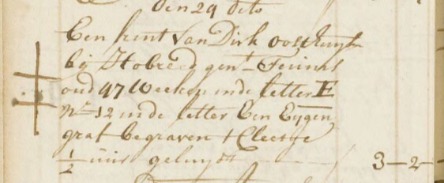 den 29 dito
Een kint van Dirk oosthuyse
bij
oud 47 Weeken inde letter E
No 12 inde letter Een Eygen
graf begraven t Cleetje
½ uur geluyt 3-2-